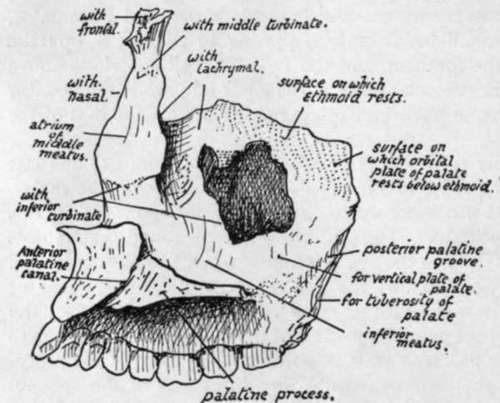 with
frontal.
with middle turbinate.
with
lachrymal.
with
nasal.
surface on which
Ethmoid rests.
atrium
of middle
meatus.
surface on
which orbital
plate of palate
rests below ethmoid.
with
inferior
turbinate
Anterior
palatine
canal.
posterior palatine
groove.
for vertical plate of
palate.
for tuberosity of
palate
inferior
meatus.
palatine process.